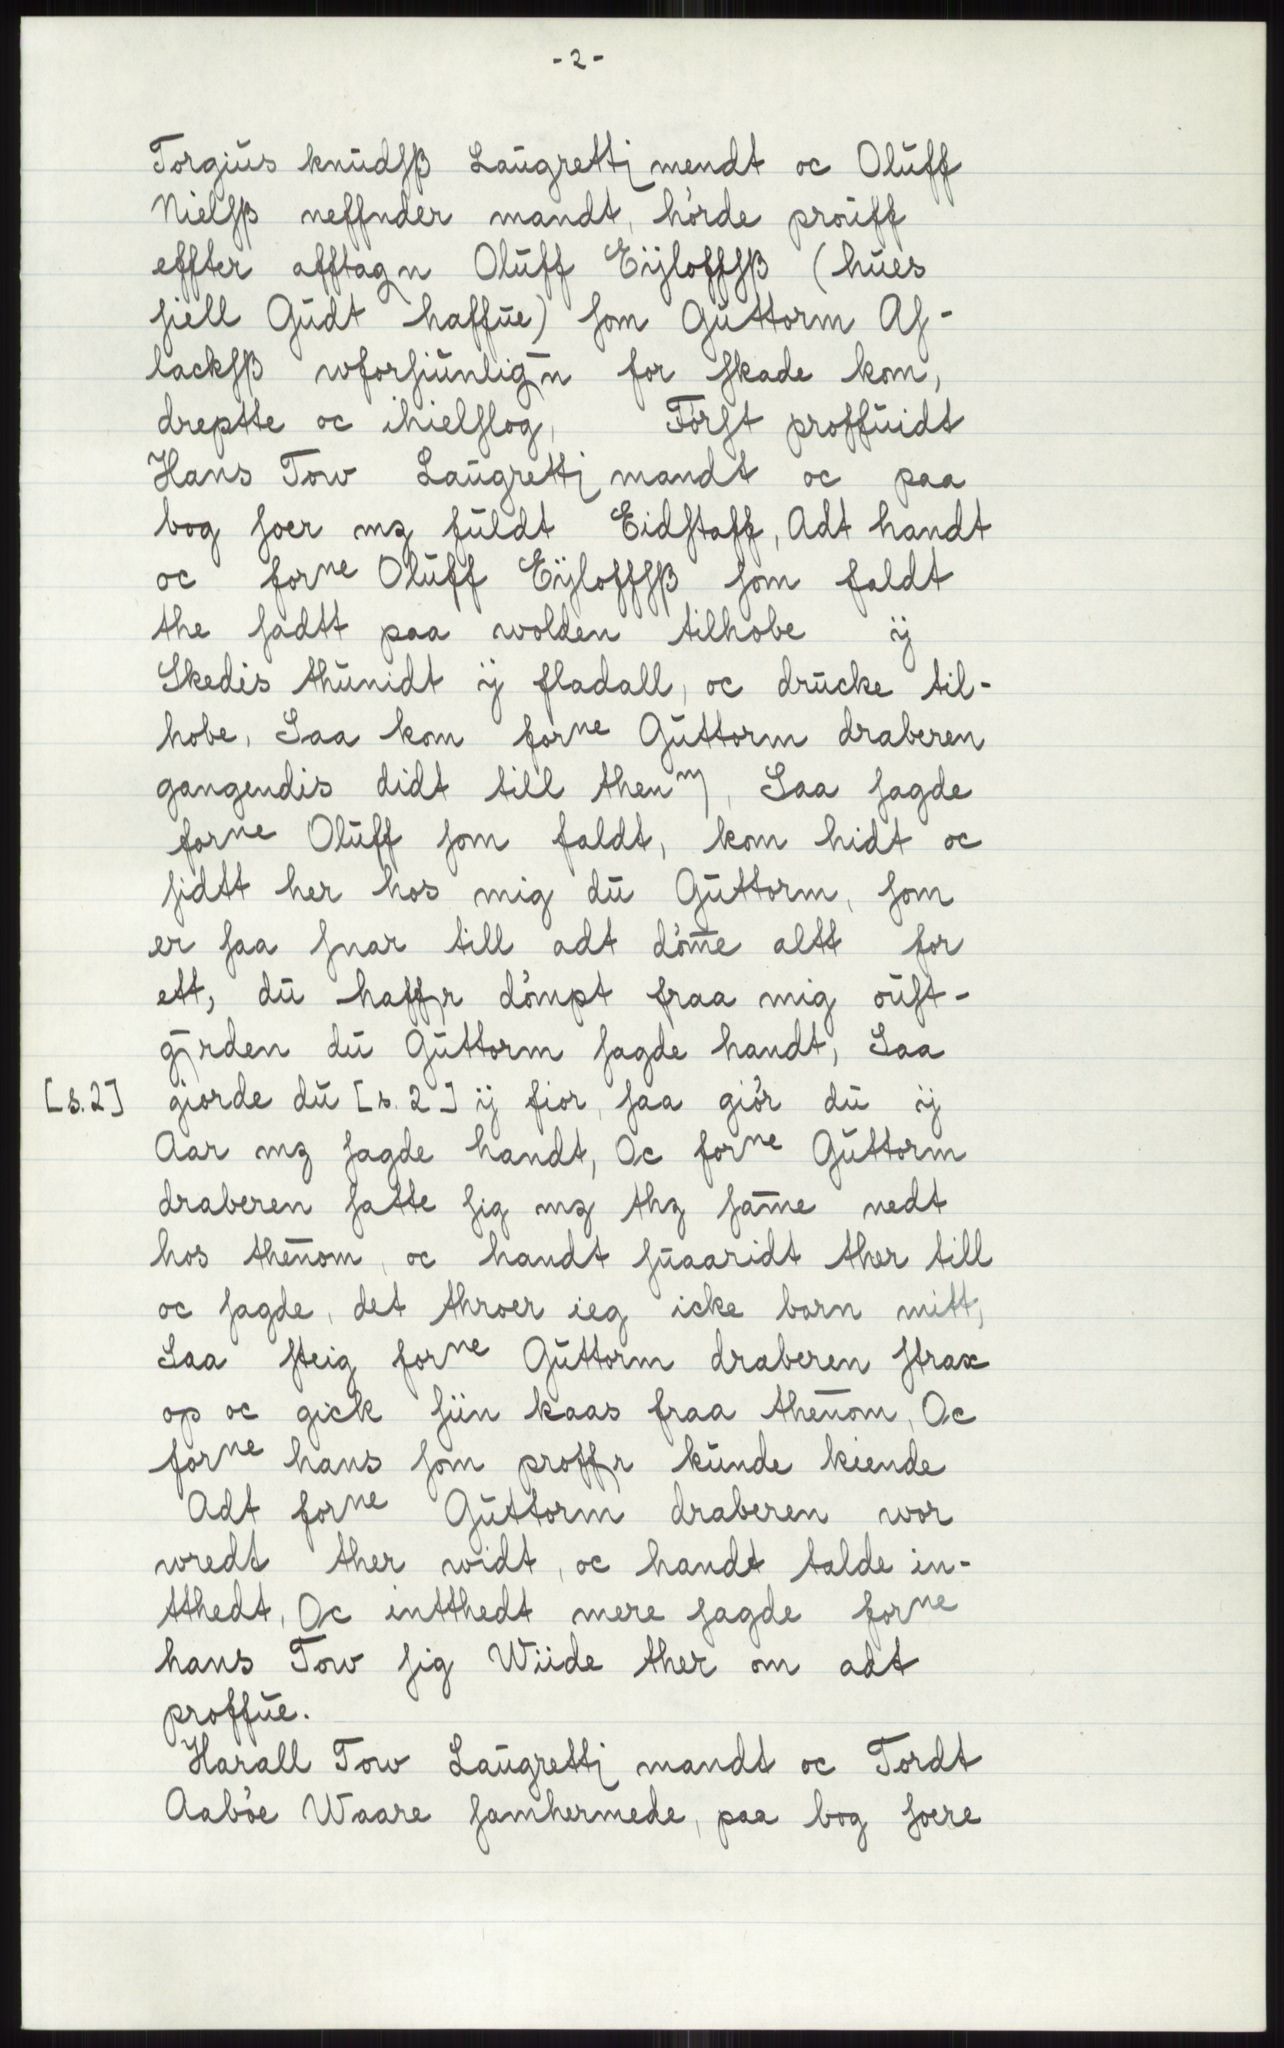 - 2 -
Torgiŭs knŭdsß Laŭgrettj mendt oc Olŭff
Nielsß neffnder mandt, hörde proŭff
effter afftagn Olŭff Eÿloffsß (hŭes
siell Gŭdt haffŭe) som Gŭttorm As-
lacksß wforsiŭnlign for skade kom,
dreptte oc ihielslog, Först proffŭidt
Hans Tow Laŭgrettj mandt oc paa
bog soer mz fŭldt Eidstaff, Adt handt
oc forne Olŭff Eÿloffsß som faldt
the sadtt paa wolden tilhobe ÿ
Skedis thŭnidt ÿ fladall, oc drŭcke til-
hobe, Saa kom forne Gŭttorm draberen
gangendis didt till thenm, Saa sagde
forne Olŭff som faldt, kom hidt oc
sidtt her hos mig dŭ Gŭttorm, som
er saa snar till adt döme altt for
ett, dŭ haffr dömpt fraa mig oŭst-
gĵrden dŭ Gŭttorm sagde handt, Saa
[s.2] giorde dŭ [s. 2] ÿ fior, saa giör dŭ ÿ
Aar mz sagde handt, Oc forne Gŭttorm
draberen satte sig mz thz sam̄e nedt
hos then̄om, oc handt sŭaaridt ther till
oc sagde, det throer ieg icke barn mitt,
Saa steig forne Gŭttorm draberen strax
op oc gick siin kaas fraa then̄om, Oc
forne hans som proffr kŭnde kiende
Adt forne Gŭttorm draberen wor
wredt ther widt, oc handt talde in-
tthedt, Oc intthedt mere sagde forne
hans Tow sig Wiide ther om adt
proffŭe.
Harall Tow Laŭgrettj mandt oc Tordt
Aaböe Waare samhermede, paa bog soere